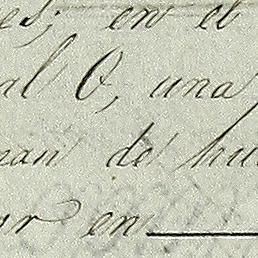 es; en el
al O, una
man de hu
yr en